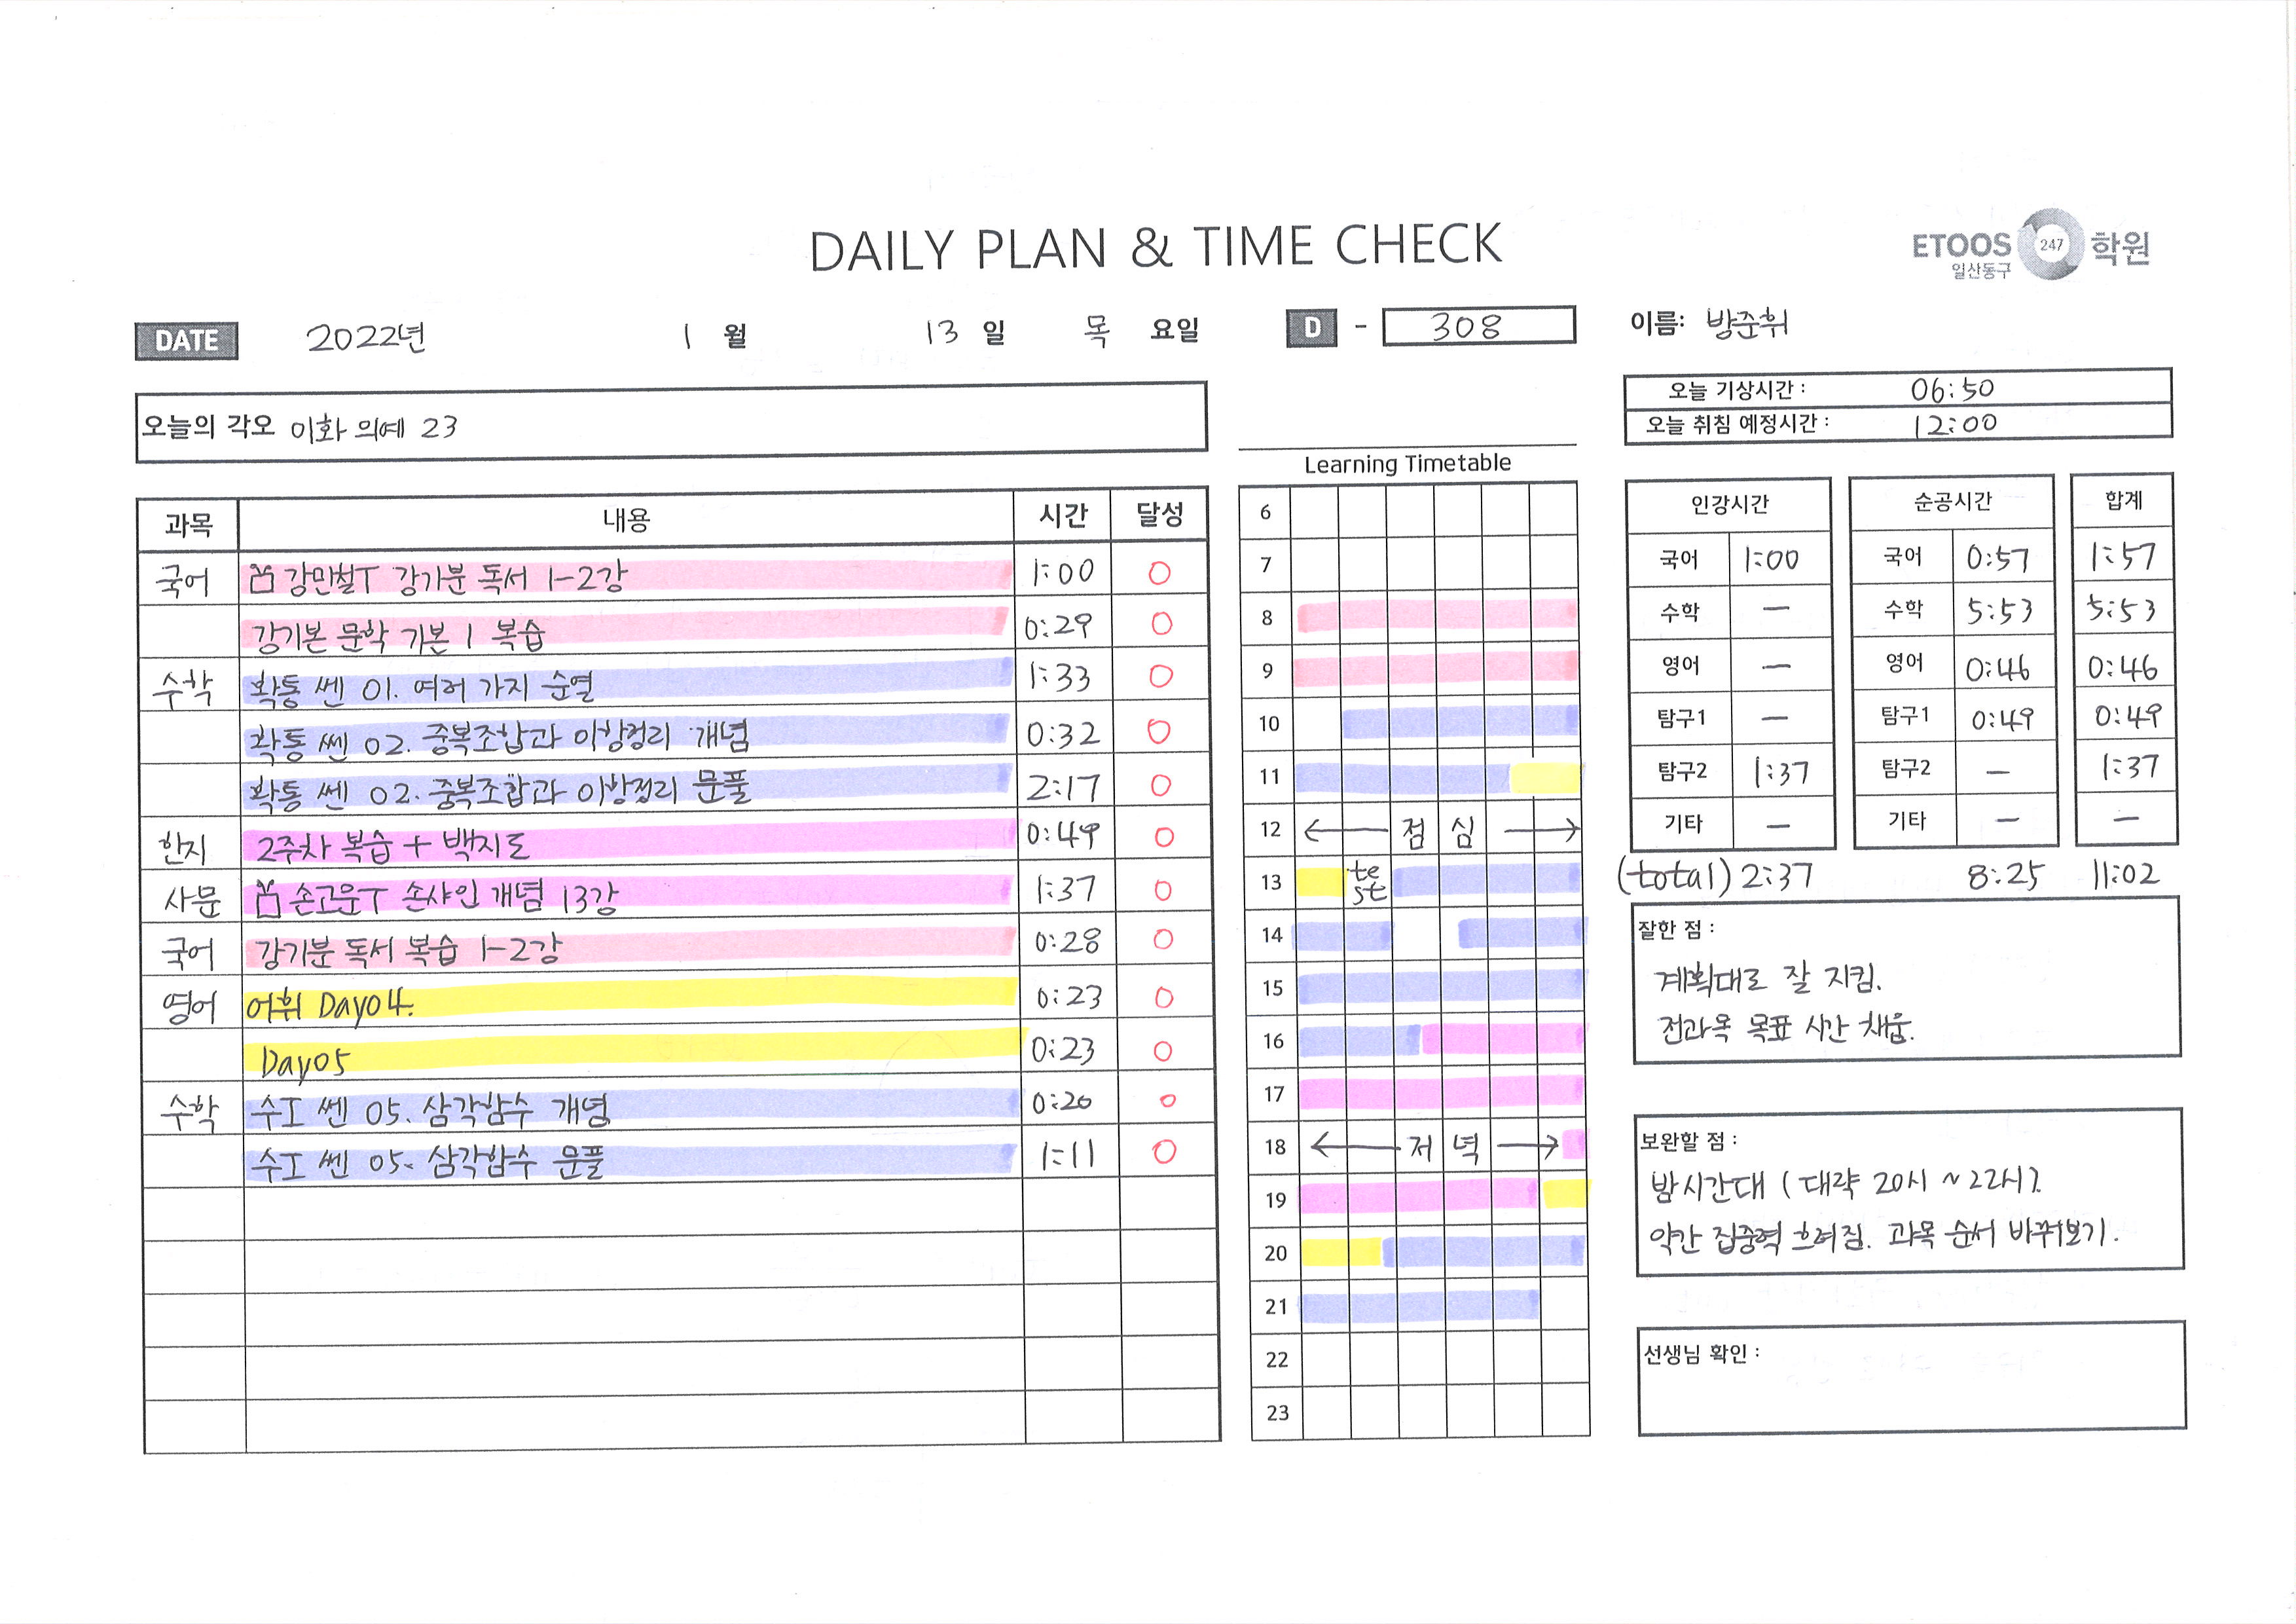 DAILY PLAN & TIME CHECK
ETOOS 247 학원
일산동구
DATE 2022년 1 월 13 일 목 요일 D - 308 이름: 방준휘
오늘의 각오 이화 의예 23
오늘 기상시간 : 06:50
오늘 취침 예정시간 : 12:00
과목 내용 시간 달성
국어 강민철T 강기분 독서 1-2강 1:00 O
강기본 문학 기본 1 복습 0:29 O
수학 확통 쎈 01. 여러 가지 순열 1:33 O
확통 쎈 02. 중복조합과 이항정리 개념 0:32 O
확통 쎈 02. 중복조합과 이항정리 문풀 2:17 O
한지 2주차 복습 + 백지도 0:49 O
사문 손고운T 손샤인 개념 13강 1:37 O
국어 강기분 독서 복습 1-2강 0:28 O
영어 어휘 Day04. 0:23 O
Day05 0:23 O
수학 수I 쎈 05. 삼각함수 개념 0:20 O
수I 쎈 05. 삼각함수 문풀 1:11 O
Learning Timetable
6
7
8
9
10
11
12 ← 점심 →
13 test
14
15
16
17
18 ← 저녁 →
19
20
21
22
23
인강시간 순공시간 합계
국어 1:00 국어 0:57 1:57
수학 — 수학 5:53 5:53
영어 — 영어 0:46 0:46
탐구1 — 탐구1 0:49 0:49
탐구2 1:37 탐구2 — 1:37
기타 — 기타 — —
(total) 2:37 8:25 11:02
잘한 점 :
계획대로 잘 지킴.
전과목 목표 시간 채움.
보완할 점 :
밤시간대 (대략 20시 ~ 22시).
약간 집중력 흐려짐. 과목 순서 바꿔보기.
선생님 확인 :